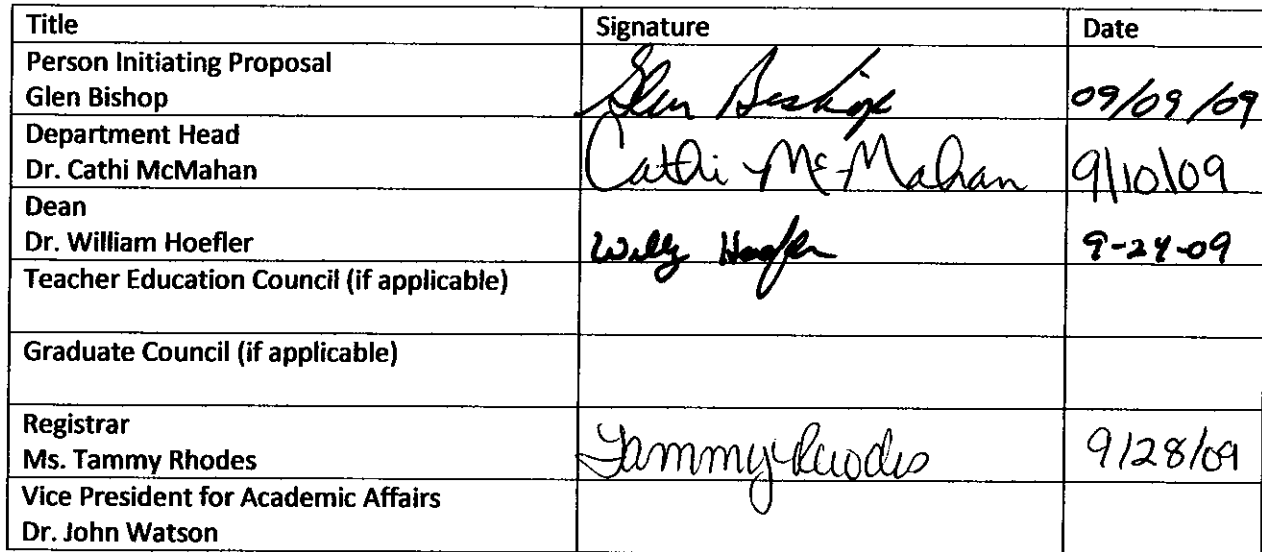 Title Signature Date
Person Initiating Proposal
Glen Bishop Glen Bishop 09/09/09
Department Head
Dr. Cathi McMahan Cathi McMahan 9/10/09
Dean
Dr. William Hoefler Willy Hoefler 9-24-09
Teacher Education Council (if applicable)
Graduate Council (if applicable)
Registrar
Ms. Tammy Rhodes Tammy Rhodes 9/28/09
Vice President for Academic Affairs
Dr. John Watson